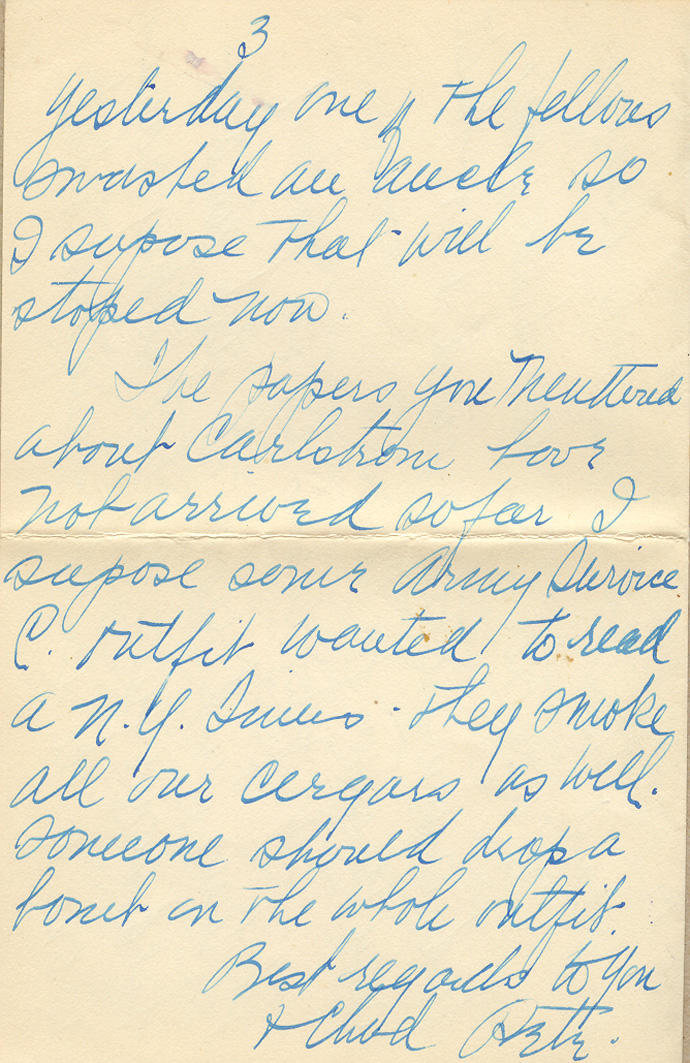 3
Yesterday one of the fellows
smashed an ancle so
I supose that will be
stoped now.
The papers you menttered
about Carlstrom have
not arrived so far I
supose some Army Service
C. outfit wanted to read
a N.Y. Times. They smoke
all our cergars as well.
Someone should drop a
bomb on the whole outfit.
Best regards to you
& Chad Pete.